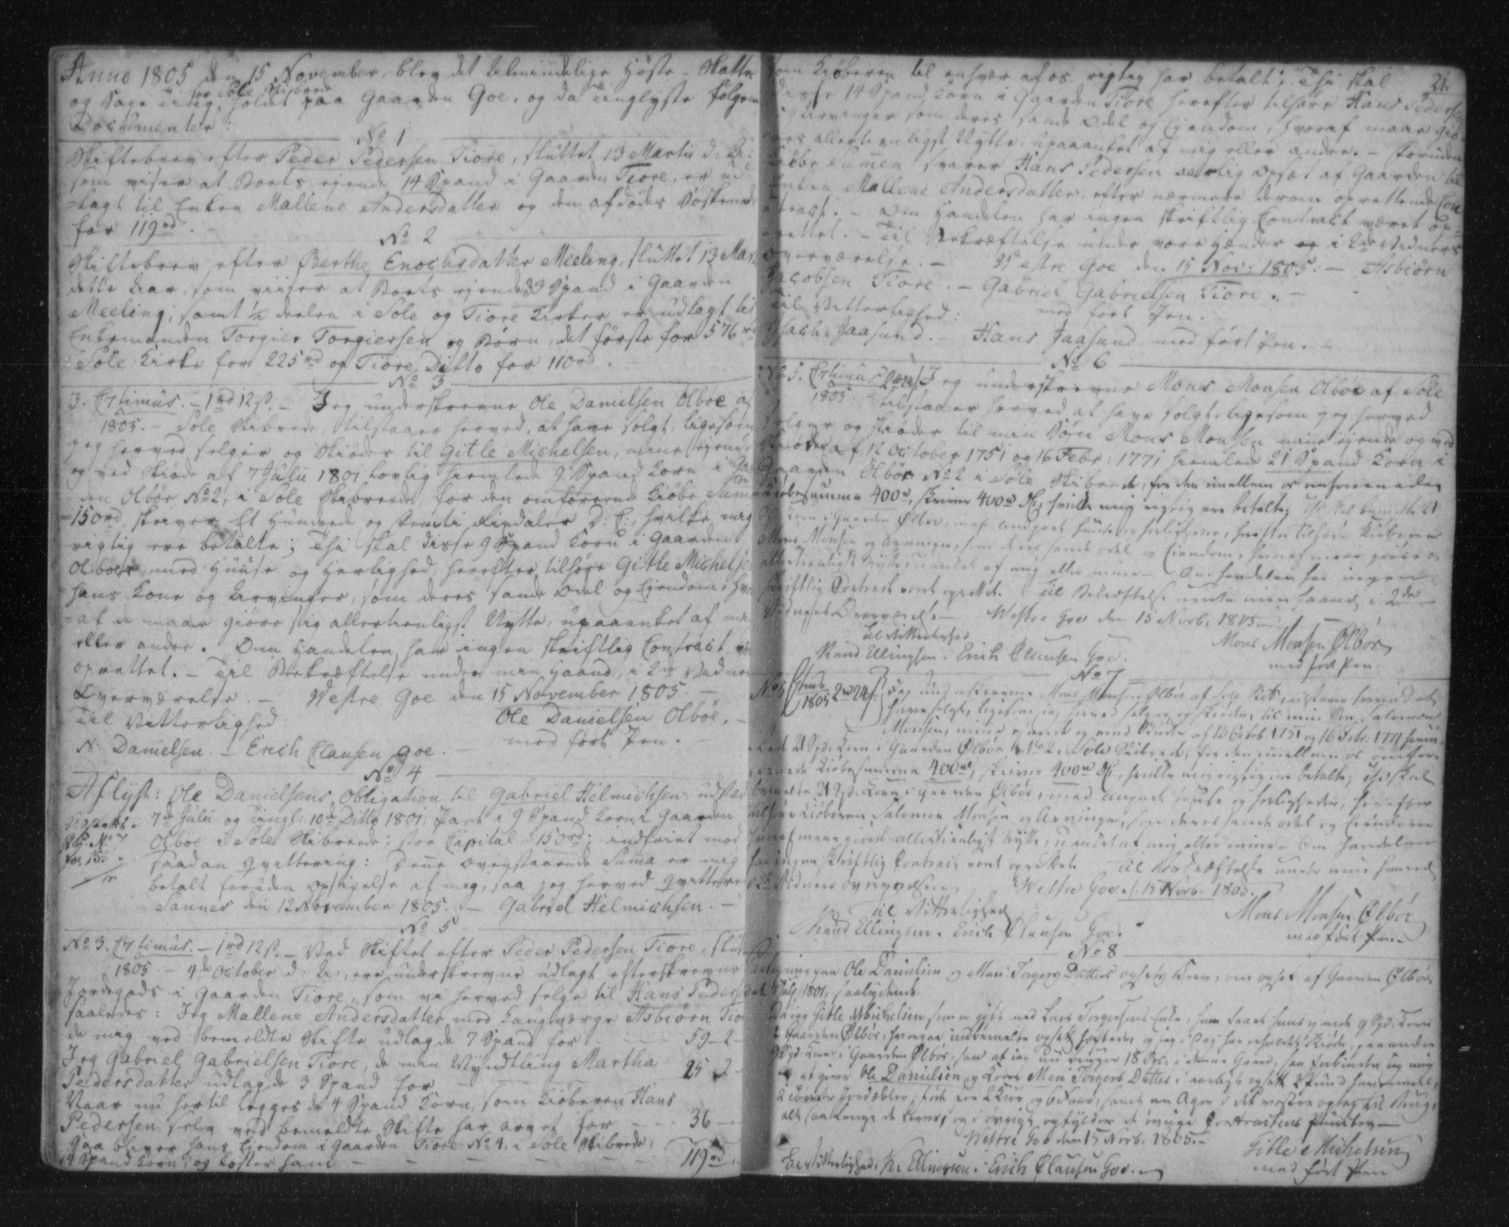 Anno 1805 den 15 November, blev det Almindelige Høste - Skatte
for Sole Skibrede
og Sage Ting, holdt paa Gaarden Goe, og da Tinglyste følgen
Documenter:
No 1
Skiftebrev efter Peder Pedersen Tiore, sluttet 13 Martii d: A:
som viser at Boets ejende 14 Spand i Gaarden Tiore, er ud
lagt til Enken Mallene Andersdatter og den afdødes Søskende
for 119rd. -
No 2
Skiftebrev efter Berthe Enochsdatter Meeling, sluttet 13 Mar
dette Aar, som viiser at Boets ejende 3 Spand i Gaarden
Meeling, samt ½ deelen i Sole og Tiore Kirker er udlagt til
Enkemanden Torgier Torgiersen og Børn, det første for 576 rd
Sole Kirke for 225rd og Tiore Ditto for 110rd.
No 3
3. Crtimus. - 1rd 12s. - Jeg underskrevne Ole Danielsen Olbøe af
1805. - Sole Skibrede, tilstaaer herved, at have solgt, ligesom
jeg herved selger og Skiøder til Gitle Michelsen, mine ejende
og ved Skiøde af 7 Julii 1801 lovlig hiemlede 9 Spand Korn i Gaar
den Olbør No 2, i Sole Skibrede, for den omforenede Kiøbe Summa
150rd, skriver Et Hundrede og Femti Rixdaler D. C., hvilke mig
rigtig ere betalte; Thi skal disse 9 Spand Korn i Gaarden
Olbøe, med Huuse og Herlighed, herefter tilhøre Gitle Michelse
hans Kone og Arvinger, som deres sande Odel og Ejendom, hvor
af de maae giøre sig allertienligst Nytte, upaaanket af mig
eller andre. Om Handelen har ingen Skriftlig Contract væ
oprettet. - Til Bekræftelse under min Haand, i 2de Vidners
Overværelse. - Westre Goe den 15 November 1805. -
Til Vitterlighed Ole Danielsen Olbøe. -
N. Danielsen. - Erich Clausen Goe. - med ført Pen.
No 4
Aflyst: Ole Danielsens Obligation til Gabriel Helmichsen, udsted
7de Julii og Tingl: 10de Ditto 1801. Pant i 9 Spand Korn i Gaarden
Olboe i Sole Skibrede: stor Capital 150rd; indfriet med
saadan qvittering: Denne ovenstaaende Suma er mig
betalt foruden opsigelse af mig, saa jeg herved qvitterer
Sannes den 12 November 1805. - Gabriel Helmichsen. -
No 5
No 3. Crtimus. - 1rd 12s. - Ved Skiftet efter Peder Pedersen Tiore, slut
1805. - 4de October d: A:, ere underskrevne udlagt efterskrevne
Jordegods i Gaarden Tiore, som vi herved selge til Hans Pedersen
saaledes: Jeg Mallene Andersdatter med Laugværge Asbiørn Tiore
de mig ved bemeldte Skifte udlagde 7 Spand for 59 - 2 -
Jeg Gabriel Gabrielsen Tiore, de min Myndtling Martha
Pedersdatter udlagde 3 Spand for 25 - 2 -
Naar nu hertil legges de 4 Spand Korn, som Kiøberen Hans
Pedersen selv ved bemeldte Skifte har arvet for - - 36 -
saa bliver hans Ejendom i Gaarden Tiore No 4, i Sole Skibrede,
14 Spand Korn, og koster ham - - - - 119rd.
21.
som Kiøberen til enhver af os rigtig har betalt; Thi skal
disse 14 Spand Korn i Gaarden Tiore herefter tilhøre Hans Peders
og Arvinger som deres sande Odel og Ejendom, hvoraf maae giø
res allertienligst Nytte, upaaanket af mig eller andre. - Foruden
Kiøbe summen svarer Hans Pedersen aarlig Opsæt af Gaarden til
Enken Mallene Andersdatter, efter nærmere derom oprettende Con
tract. - Om Handelen har ingen skriftlig Contract været op
rettet. - Til Bekræftelse under vore Hænder og i 2de Vidners
overværelse. - Westre Goe den 15 Nov: 1805. - Asbiørn
Jacobsen Tiore. - Gabriel Gabrielsen Tiore. -
Til Vitterlighed: med ført Pen. -
Jaasund. - Hans Jaasund med ført Pen. -
No 6
No 5. Crtimus 2rd 24s. Jeg underskrevne Mons Monsen Olboe af Sole
1805 tilstaaer herved at have solgt, ligesom jeg herved
selger og Skiøder til min Søn Mons Monsen mine ejende og ved
Skiøder af 12 October 1751 og 16 Febr: 1771 hiemlede 21 Spand Korn i
Gaarden Olbør No 2 i Sole Skibrede, for den imellem os omforenede
Kiøbesumma 400rd, skriver 400rd, hvilke mig rigtig ere betalte; Thi skal bemeldte 21
Spd. Korn i Gaarden Olbøe, med andpart Huuse og herligheder, herefter tilhøre Kiøberen
Mons Monsen og Arvinger, som deres sande odel og Eiendom, hvoraf maae giøres
allertienligst Nytte, uanket af mig eller mine. - Om handelen har ingen
skriftlig Contract været oprettet. Til Bekræftelse under min Haand, i 2de
Vidners Overværelse. - Westre Goe den 15 Novb. 1805. -
Til Vitterlighed Mons Monsen Olbøe
Knud Ellingsen. Erich Clausen Goe. med ført Pen. -
No 7
No 5 Ctimus 2rd 24s Jeg underskrevne Mons Monsen Olbøe af Sole Skib:, tilstaaer herved at
1805 have solgt, ligesom jeg herved selger og skiøder til min Søn Salomon
Monsen, mine ejende og ved Skiøder af 12 Octob. 1751 og 16 Febr. 1771 hiem
lede 21 Spd. Korn i Gaarden Olbør No 2 i Sole Skibrede, for den imellem os omfor
enede Kiøbesumma 400rd, skriver 400rd, hvilke mig rigtig ere betalte; thi skal
bemeldte 21 Spd. Korn i Gaarden Olbøe, med anpart Huuse og herligheder, herefter
tilhøre Kiøberen Salomon Monsen og Arvinger, som deres sande odel og Eiendom
hvoraf maae giøres allertienligst Nytte, uanket af mig eller mine. - Om handelen
har ingen skriftlig Contract været oprettet. Til Bekræftelse under min haand
i 2de Vidners overværelse. - Westre Goe d. 15 Novb. 1805.
Til Vitterlighed Mons Monsen Olbøe
Knud Ellingsen. Erich Clausen Goe. med ført Pen. -
No 8
Ole Danielsen og Mari Torgers Datters Kone, om opset af Gaarden Olbøe
Julj 1801, saalydende
Gitle Michelsen, som er gift med Lars Torgersens Enke, have hans ejende 9 Spd. Korn
i Gaarden Olbøe, hvoraf
9 Spd. Korn i Gaarden Olbøe,
Ole Danielsen og Kone Mari Torgers Datter i aarligt opset

Westre Goe den 15 Novb. 1805. -
Gitle Michelsen
Til Vitterlighed: K: Ellingsen. Erich Clausen Goe. - med ført Pen